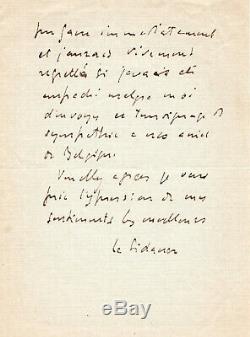 immédiatement
et j'aurais vivement
regretté si j'avais été
empêché malgré moi
d'envoyer ce témoignage de
sympathie à nos amis
de Belgique.
Veuillez agréer je vous
prie l'expression de mes
sentiments les meilleurs
Le Sidaner